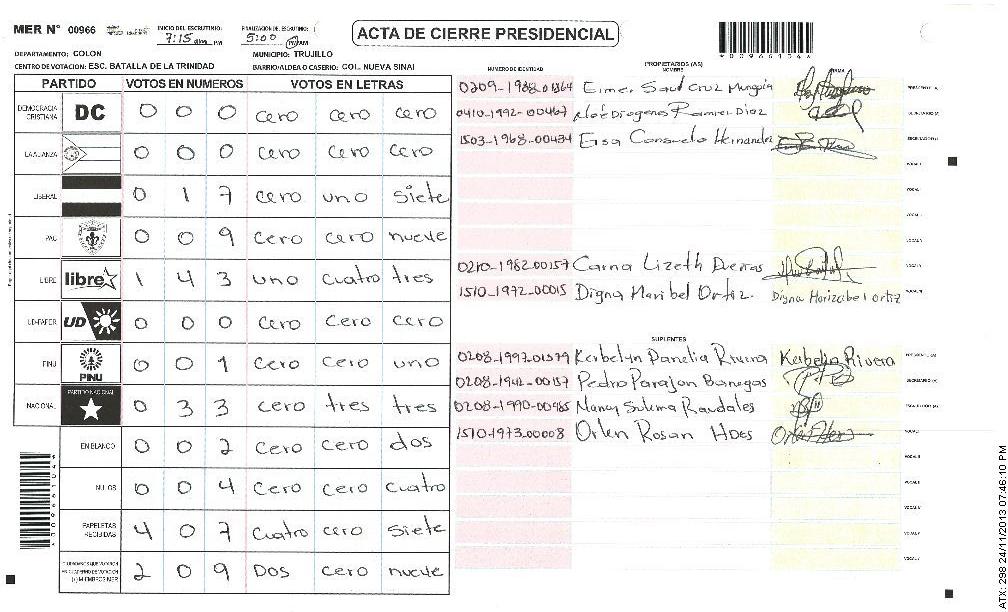 MER N° 00966
INICIO DEL ESCRUTINIO: 7:15 am PM
FINALIZACION DEL ESCRUTINIO: 5:00 PM AM
ACTA DE CIERRE PRESIDENCIAL
DEPARTAMENTO: COLON
MUNICIPIO: TRUJILLO
CENTRO DE VOTACION: ESC. BATALLA DE LA TRINIDAD
BARRIO/ALDEA O CASERIO: COL. NUEVA SINAI
PARTIDO VOTOS EN NUMEROS VOTOS EN LETRAS
DEMOCRACIA CRISTIANA DC 0 0 0 cero cero cero
LA ALIANZA 0 0 0 cero cero cero
LIBERAL 0 1 7 cero uno siete
PAC 0 0 9 cero cero nueve
LIBRE libre 1 4 3 uno cuatro tres
UD-FAPER UD 0 0 0 cero cero cero
PINU PINU 0 0 1 cero cero uno
NACIONAL PARTIDO NACIONAL 0 3 3 cero tres tres
EN BLANCO 0 0 2 cero cero dos
NULOS 0 0 4 cero cero cuatro
PAPELETAS RECIBIDAS 4 0 7 cuatro cero siete
CIUDADANOS QUE VOTARON EN CUADERNO DE VOTACION (+) MIEMBROS MER 2 0 9 Dos cero nueve
NUMERO DE IDENTIDAD
PROPIETARIOS (AS)
NOMBRE
FIRMA
Saul Cruz Munguia PRESIDENTE (A)
0410-1992-00467 SECRETARIO (A)
1503-1968-00434 Elsa Consuelo Hernandez ESCRUTADOR (A)
VOCAL I
0210-1982-00157 Lizeth
1510-1972-00015 Digna Maribel Ortiz.
SUPLENTES
0208-1997-01579 Rivera PRESIDENTE (A)
Pedro Banegas SECRETARIO (A)
Raudales ESCRUTADOR (A)
1510-1973-00008 Orlen Rosan HDES VOCAL I
*00966104*
ATX: 298 24/11/2013 07:46:10 PM